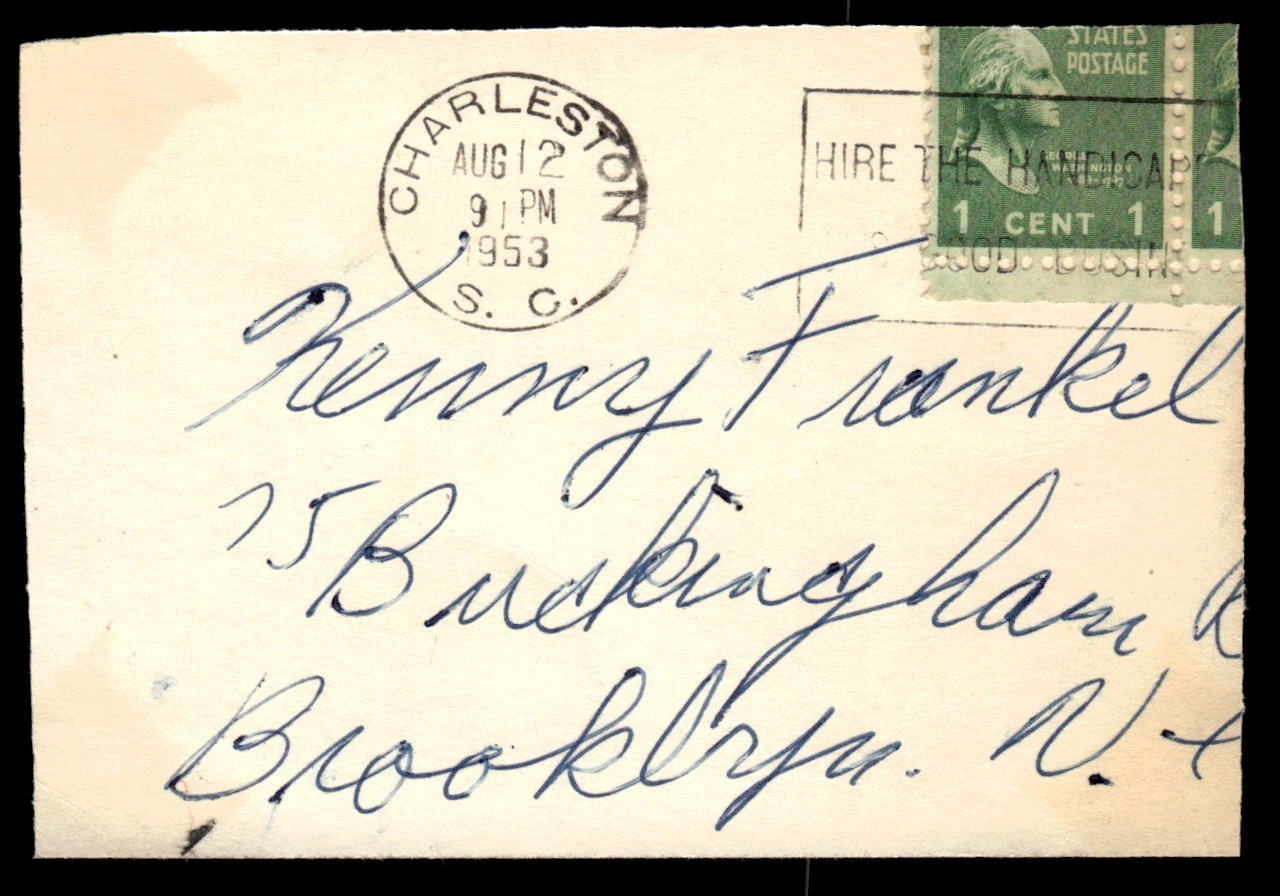 CHARLESTON
AUG 12
9 PM
1953
S. C.
STATES
POSTAGE
WASHINGTON
1 CENT 1
1
HIRE THE HANDICAP
GOOD BUSIN
Kenny Frankel
75 Buckingham
Brooklyn. N.